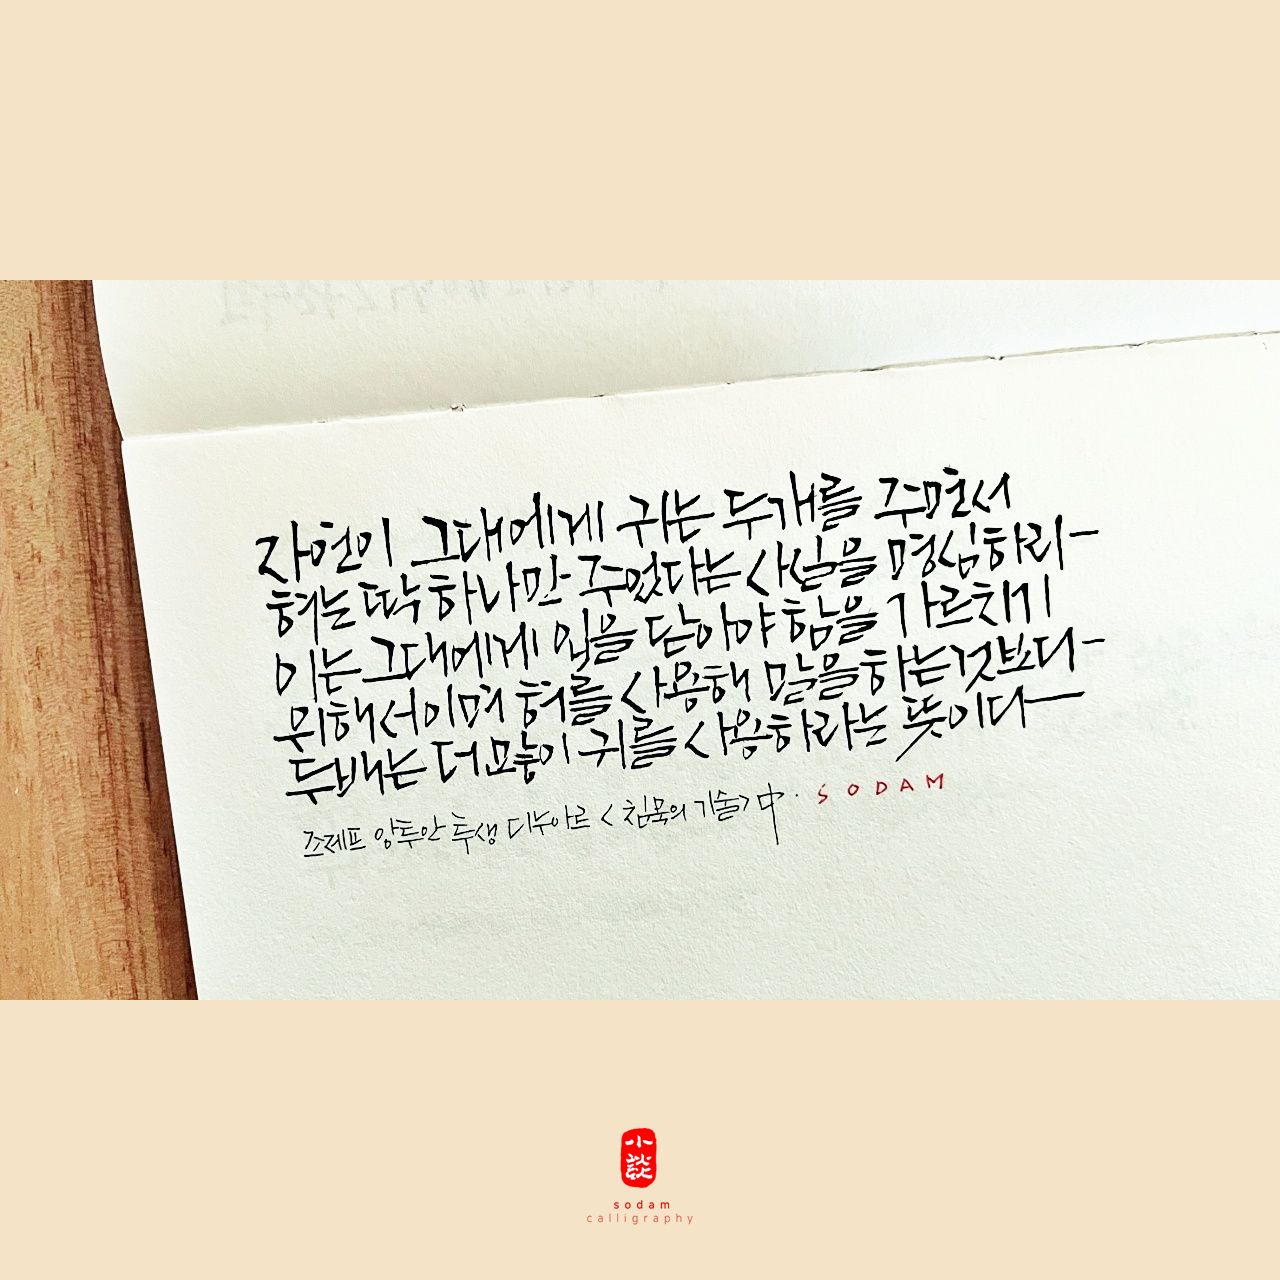 자연이 그대에게 귀는 두개를 주면서
혀는 딱 하나만 주었다는 사실을 명심하라
이는 그대에게 입을 닫아야 함을 가르치기
위해서이며 혀를 사용해 말을 하는것보다
두배는 더 많이 귀를 사용하라는 뜻이다
조제프 앙투안 투생 디누아르 <침묵의 기술> 中. SODAM
小談
sodam
calligraphy